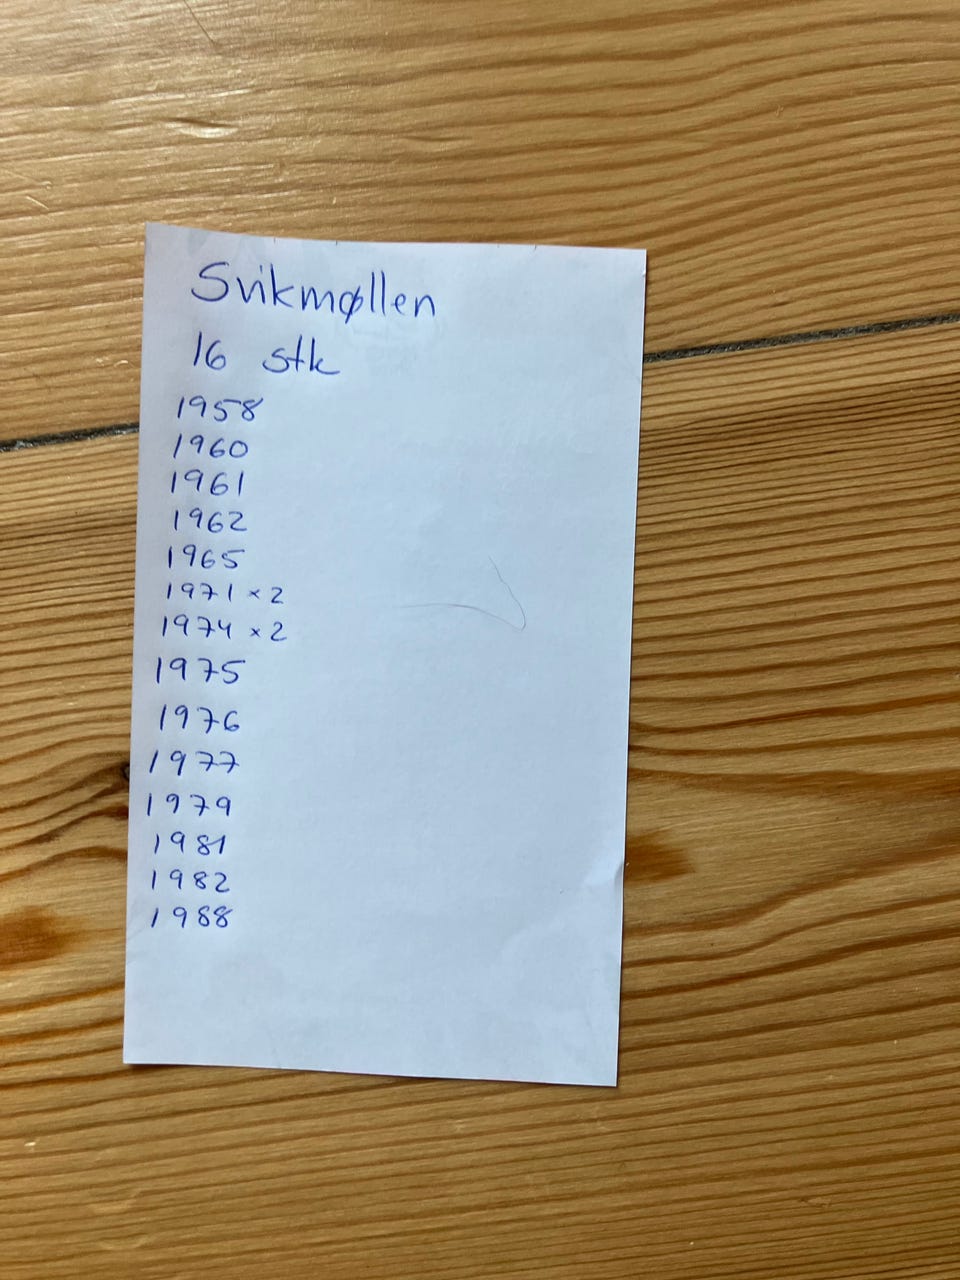 Svikmøllen
16 stk
1958
1960
1961
1962
1965
1971 × 2
1974 × 2
1975
1976
1977
1979
1981
1982
1988